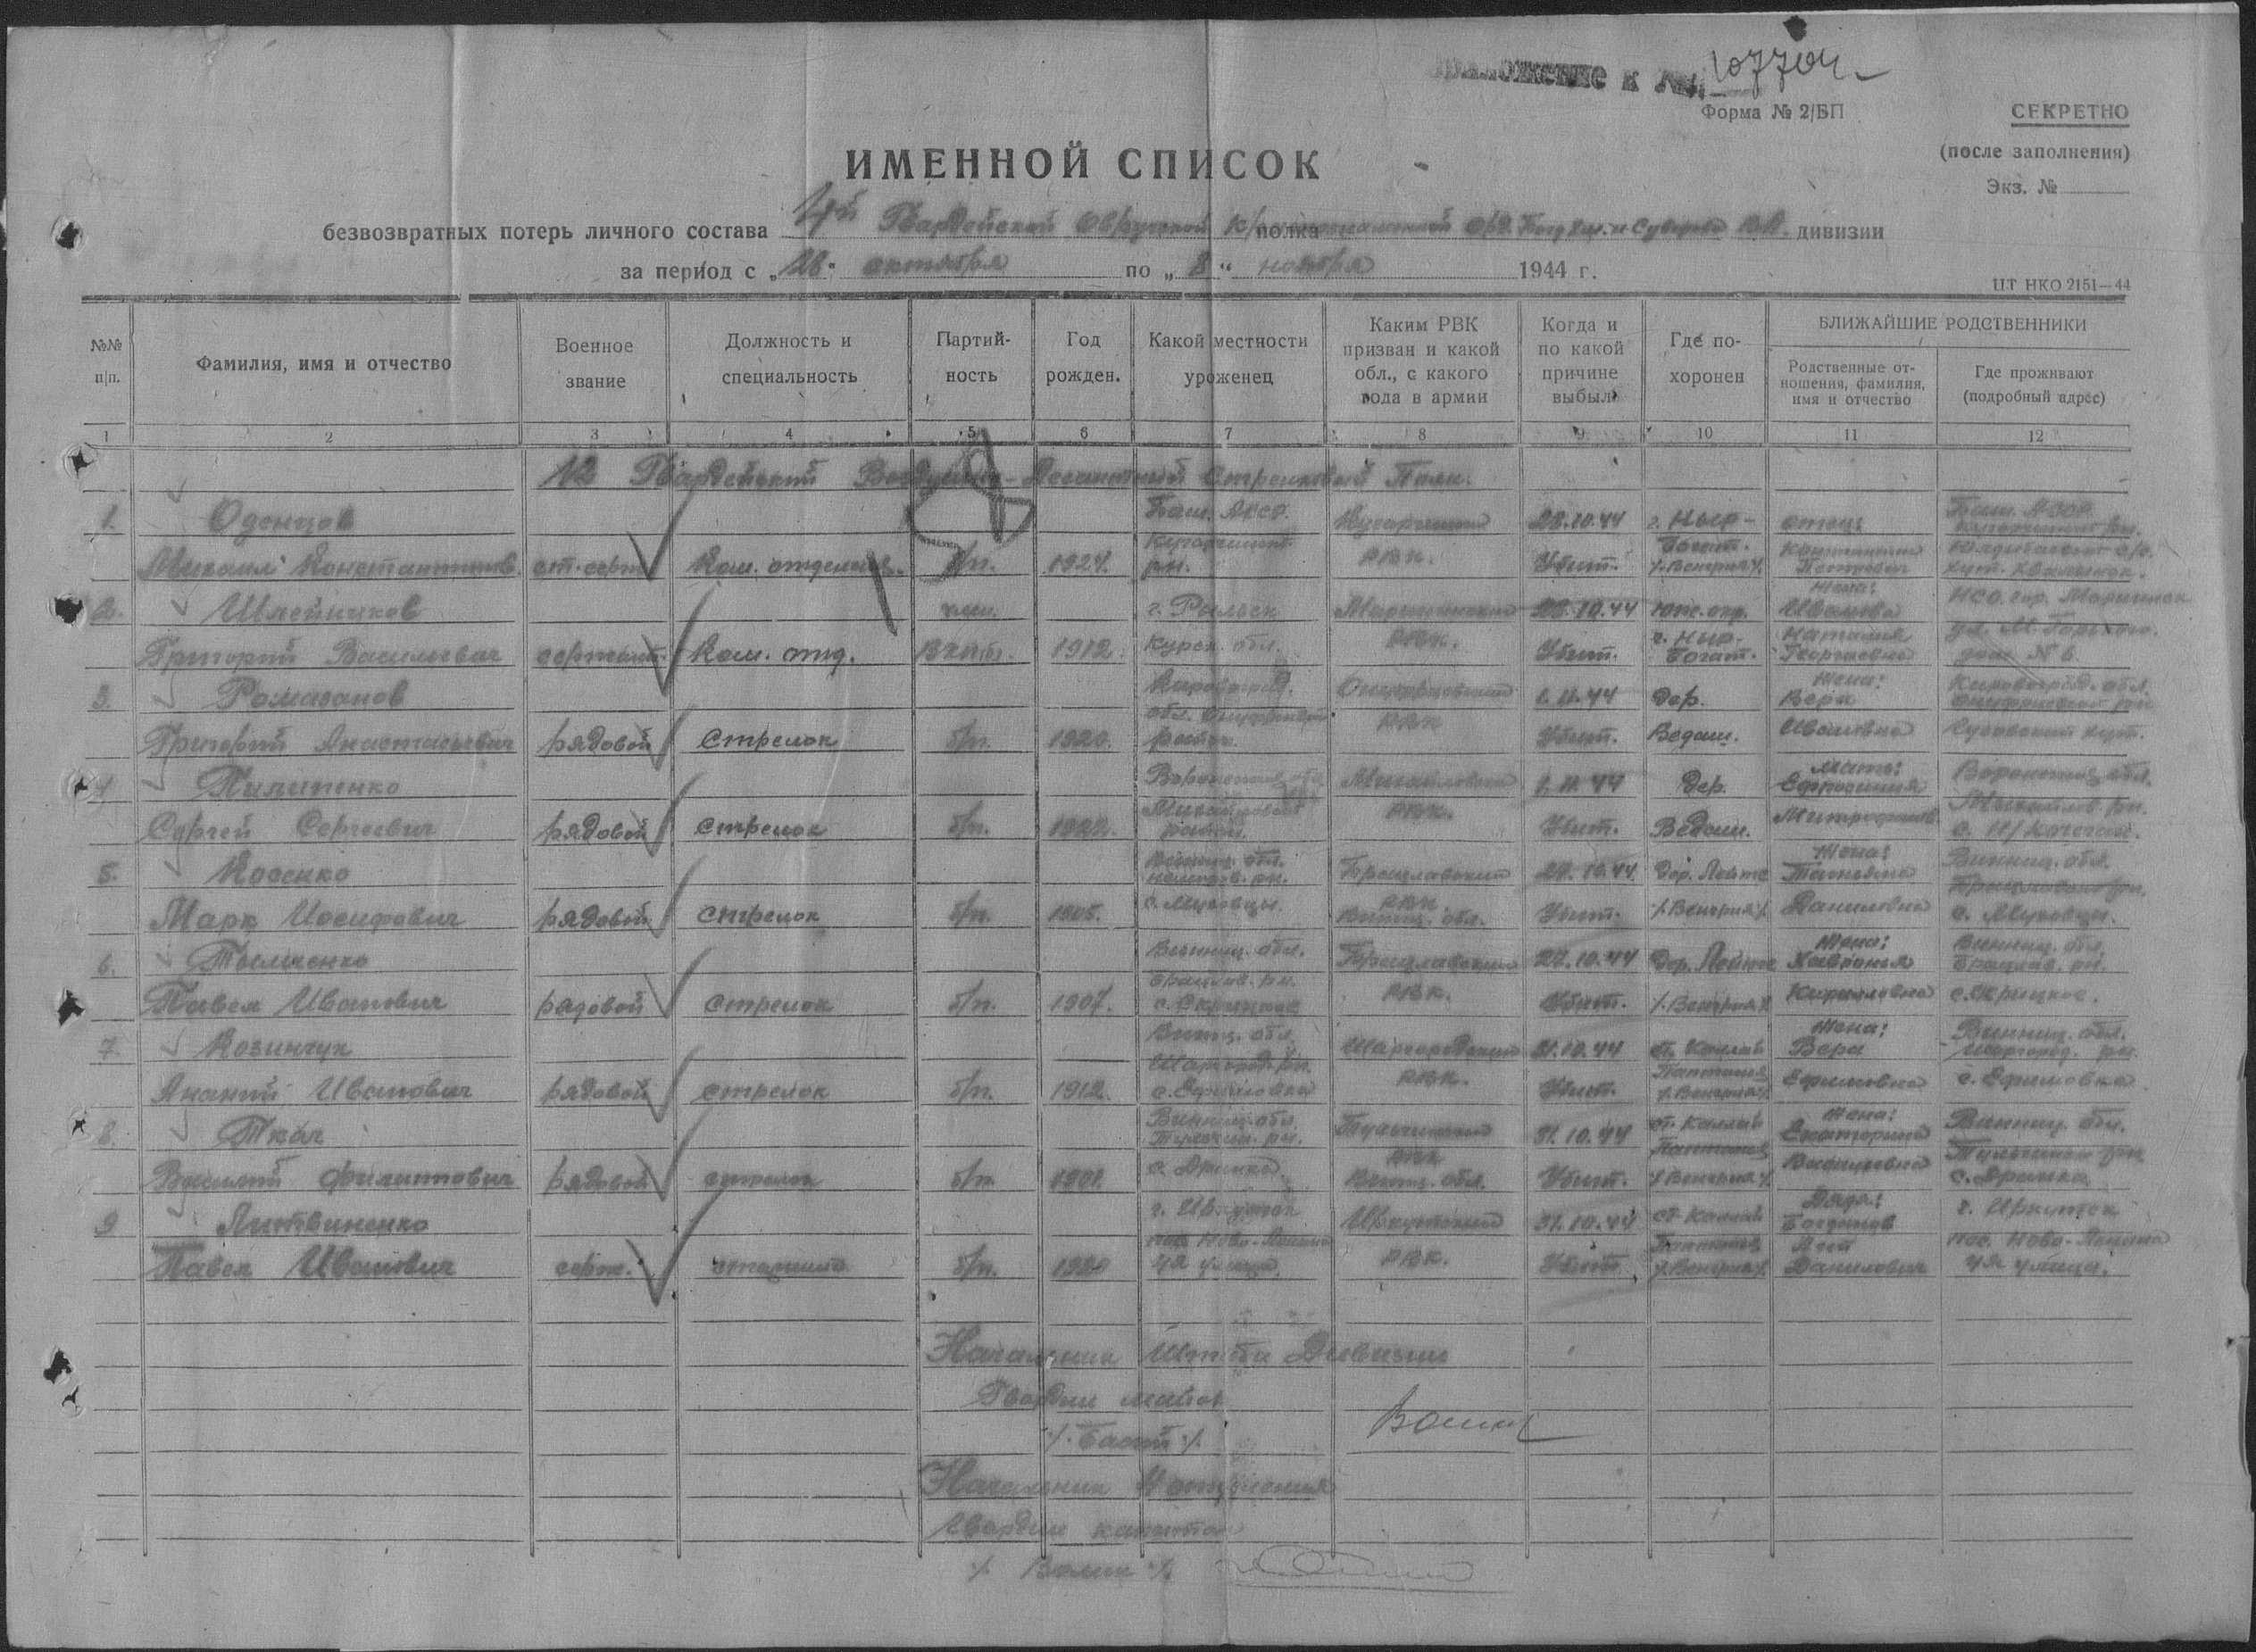 Приложение к № 107704
Форма № 2/БП
СЕКРЕТНО
(после заполнения)
Экз. №
ИМЕННОЙ СПИСОК
безвозвратных потерь личного состава 4й Гвардейской Овручской К/раснознаменной полка орд. Богд. Хм. и Суворова ВД. дивизии
за период с „26" октября по „8" ноября 1944 г.
ЦТ НКО 2151—44
№№ п|п.
Фамилия, имя и отчество
Военное звание
Должность и специальность
Партий-ность
Год рожден.
Какой местности уроженец
Каким РВК призван и какой обл., с какого года в армии
Когда и по какой причине выбыл
Где по-хоронен
БЛИЖАЙШИЕ РОДСТВЕННИКИ
Родственные от-ношения, фамилия, имя и отчество
Где проживают (подробный адрес)
1 2 3 4 5 6 7 8 9 10 11 12
12 Гвардейский Воздушно-Десантный Стрелковый Полк.
1. Оденцов Баш. АССР. 28.10.44 г. Ныр- отец: Баш. АССР.
Михаил Константинов. ст. серж. Ком. отделения б/п. 1924. рн. РВК. Убит. Богат. /.Венгрия/. Константин Петрович
2. Шлейников член. г. Рыльск Мариинский 28.10.44 жена: Иванова НСО. гор. Мариинск
Григорий Васильевич сержант. Ком. отд. ВКП(б). 1912. Курск. обл. РВК. Убит. г. Ныр-Богат. Наталия Георгиевна ул. М. Горького. дом. № 6.
3. Ромазанов Кировоград. Онуфриевский 1.11.44 дер. жена: Вера Кировоград. обл.
Григорий Анастасьевич рядовой стрелок б/п. 1920. обл. район. РВК Убит. Ведаш. Ивановна хут.
4 Пилипенко Воронежск. обл. Михайловский 1.11.44 дер. мать: Ефросиния Воронежск. обл.
Сергей Сергеевич рядовой стрелок б/п. 1922. Михайловский район. РВК. Убит. Ведаш. Митрофанов. Михайлов. рн.
5. Косенко Винниц. обл. Брацлавский 27.10.44 дер. жена: Татьяна Винниц. обл.
Марк Иосифович рядовой стрелок б/п. 1905. с. Муховцы. РВК Винниц. обл. Убит. /.Венгрия/. Даниловна с. Муховцы.
6. Тымченко Винниц. обл. Брацлавский 27.10.44 дер. жена: Хавронья Винниц. обл. Брацлав. рн.
Павел Иванович рядовой стрелок б/п. 1907. Брацлав. рн. с. Скрицкое РВК. Убит. /.Венгрия/. Кирилловна с. Скрицкое.
7. Козинчук Винниц. обл. Шаргородский 31.10.44 ст. Каллай жена: Вера Винниц. обл. Шаргород. рн.
Ананий Иванович рядовой стрелок б/п. 1912. Шаргород. рн. с. Ефимовка РВК. Убит. /.Венгрия/. Ефимовна с. Ефимовка.
8. Ткач Винниц. обл. Тульчин. рн. Тульчинский 31.10.44 ст. Каллай жена: Екатерина Винниц. обл.
Василий Филиппович рядовой стрелок б/п. 1901. РВК Винниц. обл. Убит. /.Венгрия/. Васильевна Тульчинский рн
9 Литвиненко г. Иркутск Иркутский 31.10.44 ст. Каллай Дядя: Богданов г. Иркутск
Павел Иванович серж. старшина б/п. 1920 пос. Ново-Ленино 4я улица. РВК. Убит. /.Венгрия/. Данилович пос. Ново-Ленино 4я улица.
Начальник Штаба Дивизии
Гвардии майор
Начальник 4 отделения
Гвардии капитан